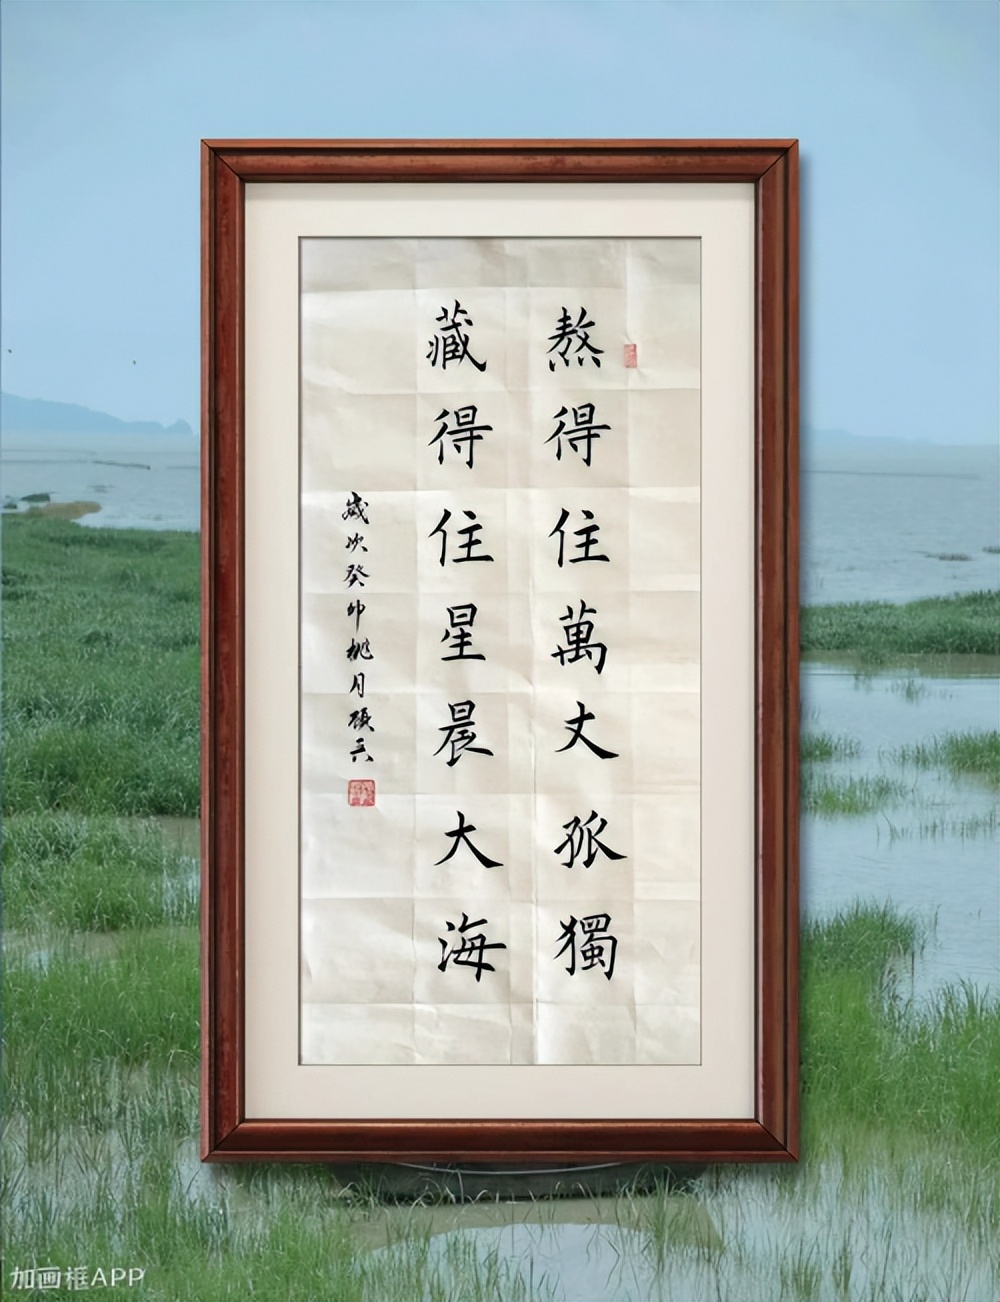 熬得住萬丈孤獨
藏得住星晨大海
歲次癸卯桃月
加画框APP